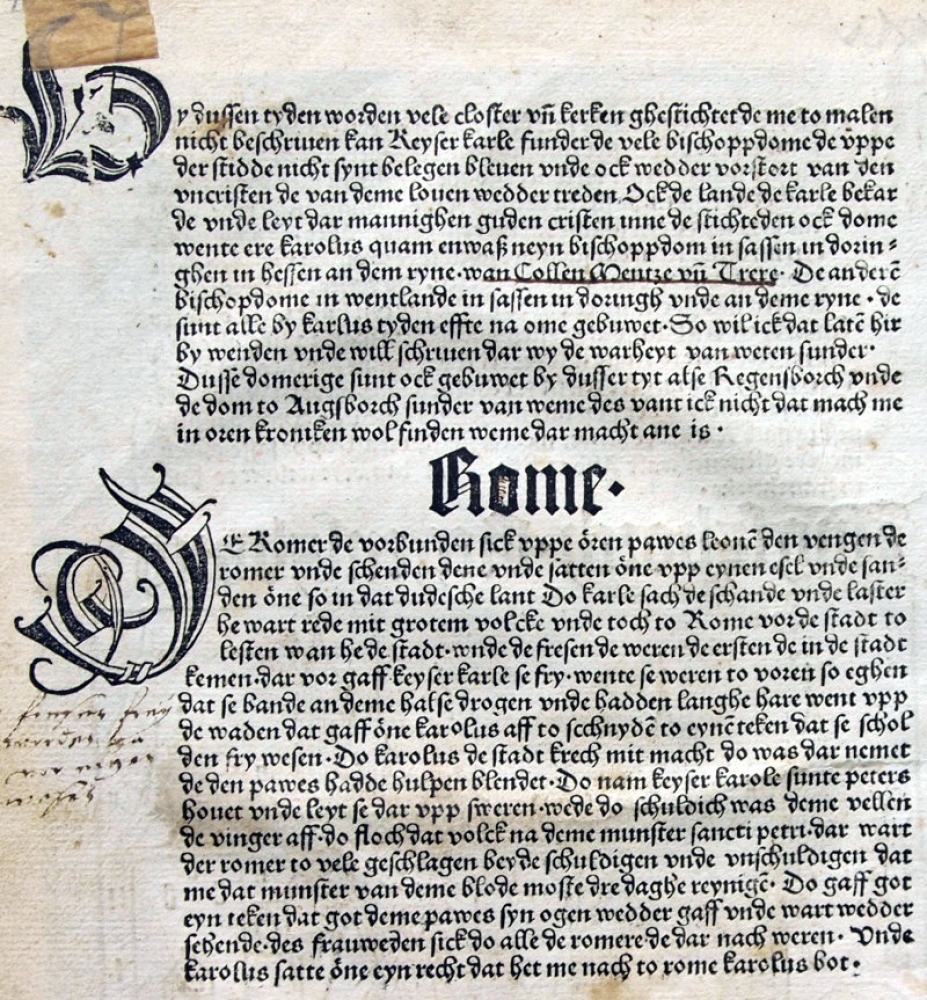 By dussen tyden worden vele closter vñ kerken ghestichtet de me to malen
nicht beschriuen kan Keyser karle funder de vele bischoppdome de vppe
der stidde nicht synt belegen bleuen vnde ock wedder vorstort van den
vncristen de van deme louen wedder treden. Ock de lande de karle bekar
de vnde leyt dar mannighen guden cristen inne de stichteden ock dome
wente ere karolus quam enwaß neyn bischoppdom in sassen in dorin⸗
ghen in hessen an dem ryne·wan Collen Mentze vñ Trere· De anderē
bischopdome in wentlande in sassen in doringh vnde an deme ryne · de
sunt alle by karlus tyden effte na ome gebuwet·So wil ick dat latē hir
by wenden vnde will schriuen dar wy de warheyt van weten sunder·
Dusse domerige sunt ock gebuwet by dusser tyt alse Regensborch vnde
de dom to Augsborch sunder van weme des vant ick nicht dat mach me
in oren kroniken wol finden weme dar macht ane is ·
Rome·
DE Romer de vorbunden sick vppe ören pawes leonē den vengen de
romer vnde schenden dene vnde satten öne vpp eynen esel vnde san⸗
den öne so in dat dudesche lant Do karle sach de schande vnde laster
he wart rede mit grotem volcke vnde toch to Rome vor de stadt to
lesten wan he de stadt·vnde de fresen de weren de ersten de in de stadt
kemen·dar vor gaff keyser karle se fry·wente se weren to voren so eghen
dat se bande an deme halse drogen vnde hadden langhe hare went vpp
de waden dat gaff öne karolus aff to scchnydē to eynē teken dat se schol
den fry wesen·Do karolus de stadt krech mit macht do was dar nemet
de den pawes hadde hulpen blendet·Do nam keyser karole sunte peters
houet vnde leyt se dar vpp sweren·wede do schuldich was deme vellen
de vinger aff·do floch dat volck na deme munster sancti petri·dar wart
der romer to vele geschlagen beyde schuldigen vnde vnschuldigen dat
me dat munster van deme blode moste dre daghe reynigē· Do gaff got
eyn teken dat got deme pawes syn ogen wedder gaff vnde wart wedder
sehende·des frauweden sick do alle de romere·de dar nach weren· Vnde
karolus satte öne eyn recht dat het me nach to rome karolus bot·